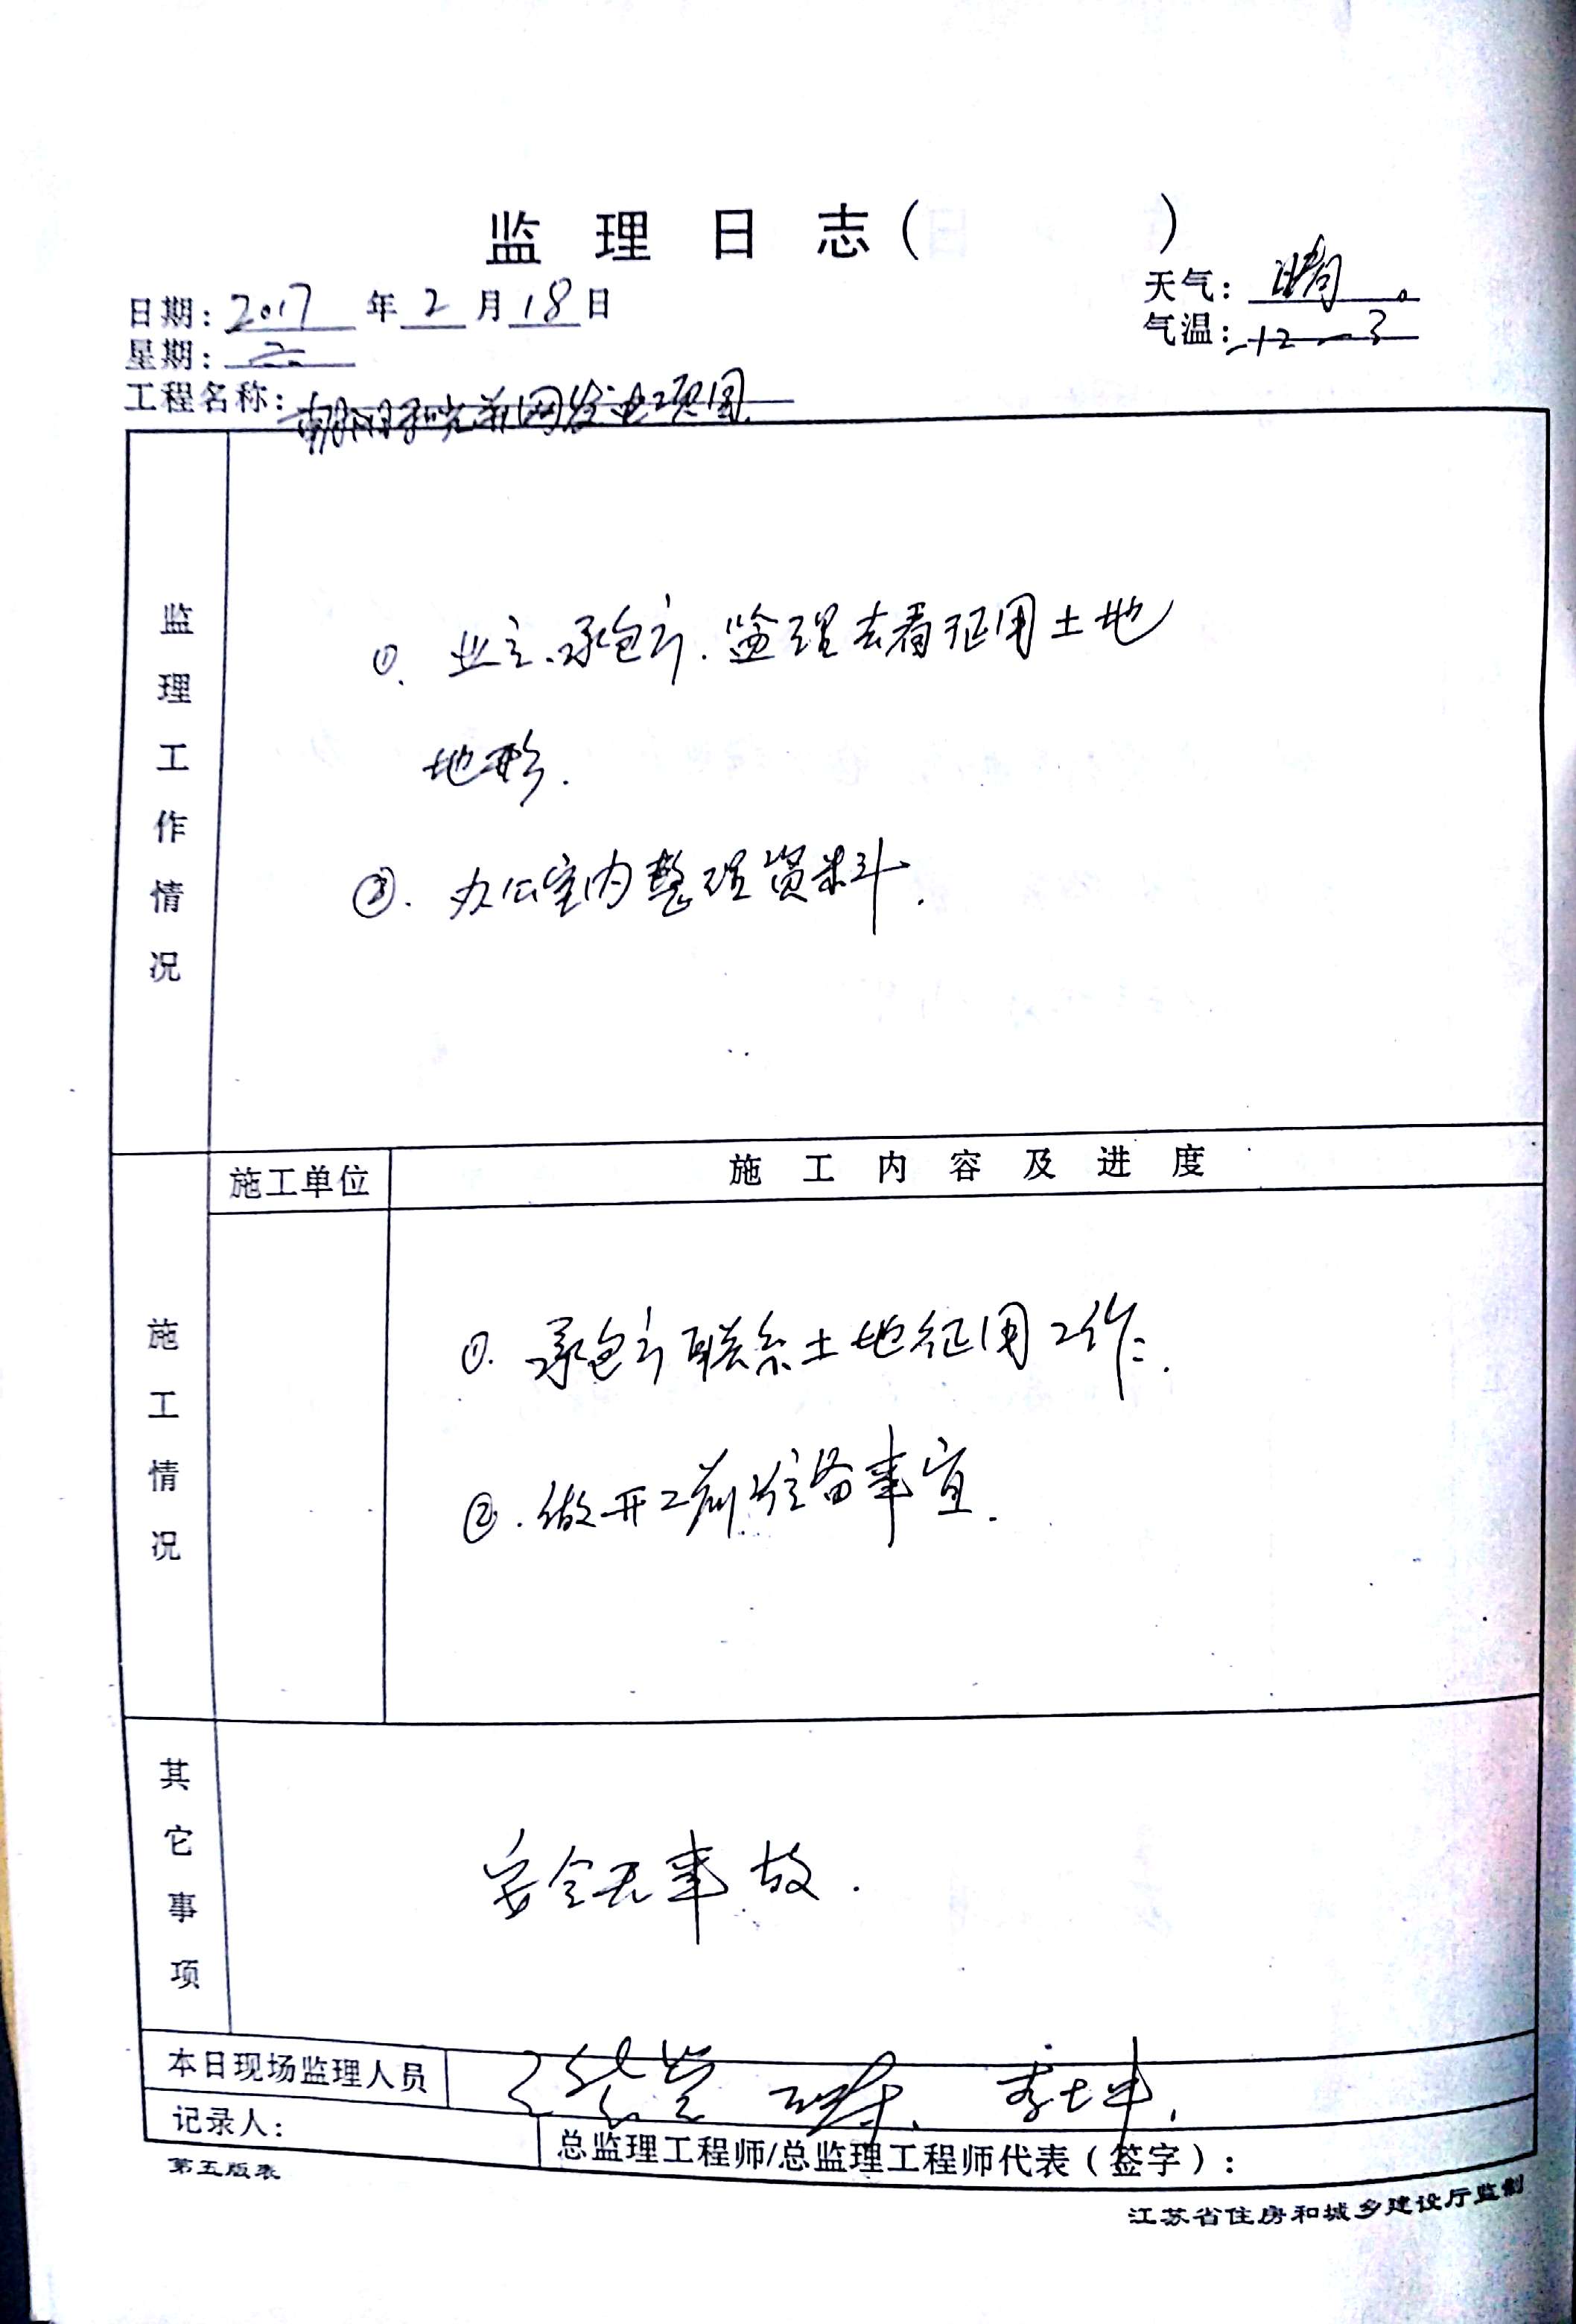 监理日志(            )
日期: 2017 年 2 月 18 日
天气: 晴。
星期: 二
气温: -12 — 3
工程名称: 朝阳和光并网发电项目
监理工作情况
①. 业主、承包方、监理去看征用土地
地形.
②. 办公室内整理资料.
施工单位 施工内容及进度
施工情况
①. 承包方联系土地征用工作.
②. 做开工前准备事宜.
其它事项
安全无事故.
本日现场监理人员 李坤.
记录人:
总监理工程师/总监理工程师代表(签字):
第五版表
江苏省住房和城乡建设厅监制